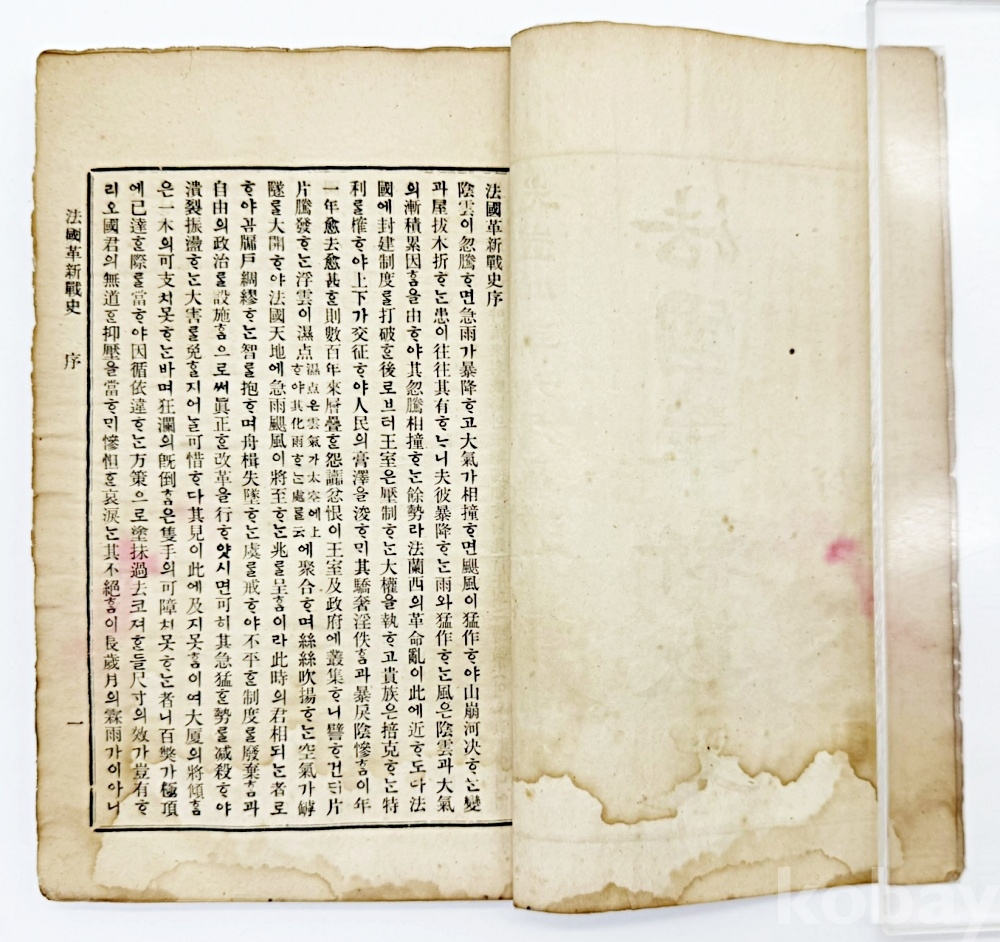 法國革新戰史序
陰雲이忽騰ᄒᆞ면急雨가暴降ᄒᆞ고大氣가相撞ᄒᆞ면颶風이猛作ᄒᆞ야山崩河决ᄒᆞᄂᆞᆫ變
과屋拔木折ᄒᆞᄂᆞᆫ患이往往其有ᄒᆞᄂᆞ니夫彼暴降ᄒᆞᄂᆞᆫ雨와猛作ᄒᆞᄂᆞᆫ風은陰雲과大氣
의漸積累因ᄒᆞᆷ을由ᄒᆞ야其忽騰相撞ᄒᆞᄂᆞᆫ餘勢라法蘭西의革命亂이此에近ᄒᆞ도다法
國에封建制度ᄅᆞᆯ打破ᄒᆞᆫ後로브터王室은壓制ᄒᆞᄂᆞᆫ大權을執ᄒᆞ고貴族은掊克ᄒᆞᄂᆞᆫ特
利ᄅᆞᆯ榷ᄒᆞ야上下가交征ᄒᆞ야人民의膏澤을浚ᄒᆞ며其驕奢淫佚ᄒᆞᆷ과暴戾陰慘ᄒᆞᆷ이年
一年愈去愈甚ᄒᆞᆫ則數百年來層疊ᄒᆞᆫ怨讟忿恨이王室及政府에叢集ᄒᆞ니譬ᄒᆞ건ᄃᆡ片
片騰發ᄒᆞᄂᆞᆫ浮雲이濕点濕点은雲氣가太空에上ᄒᆞ야其化雨ᄒᆞᄂᆞᆫ處ᄅᆞᆯ云에聚合ᄒᆞ며絲絲吹揚ᄒᆞᄂᆞᆫ空氣가罅
隧ᄅᆞᆯ大開ᄒᆞ야法國天地에急雨颶風이將至ᄒᆞᄂᆞᆫ兆ᄅᆞᆯ呈ᄒᆞᆷ이라此時의君相되ᄂᆞᆫ者로
ᄒᆞ야곰牖戶綢繆ᄒᆞᄂᆞᆫ智ᄅᆞᆯ抱ᄒᆞ며舟楫失墜ᄒᆞᄂᆞᆫ虞ᄅᆞᆯ戒ᄒᆞ야不平ᄒᆞᆫ制度ᄅᆞᆯ廢棄ᄒᆞᆷ과
自由의政治ᄅᆞᆯ設施ᄒᆞᆷ으로써眞正ᄒᆞᆫ改革을行ᄒᆞ얏시면可히其急猛ᄒᆞᆫ勢ᄅᆞᆯ減殺ᄒᆞ야
潰裂振盪ᄒᆞᄂᆞᆫ大害ᄅᆞᆯ免ᄒᆞᆯ지어ᄂᆞᆯ可惜ᄒᆞ다其見이此에及지못ᄒᆞᆷ이여大厦의將傾ᄒᆞᆷ
은一木의可支치못ᄒᆞᄂᆞᆫ바며狂瀾의旣倒ᄒᆞᆷ은隻手의可障치못ᄒᆞᄂᆞᆫ者니百獘가極頂
에已達ᄒᆞᆫ際ᄅᆞᆯ當ᄒᆞ야因循依違ᄒᆞᄂᆞᆫ方策으로塗抹過去코져ᄒᆞᆫᄃᆞᆯ尺寸의效가豈有ᄒᆞ
리오國君의無道ᄒᆞᆫ抑壓을當ᄒᆞ며慘怛ᄒᆞᆫ哀淚ᄂᆞᆫ其不絕ᄒᆞᆷ이長歲月의霖雨가이아니
法國革新戰史 序 一
kobay